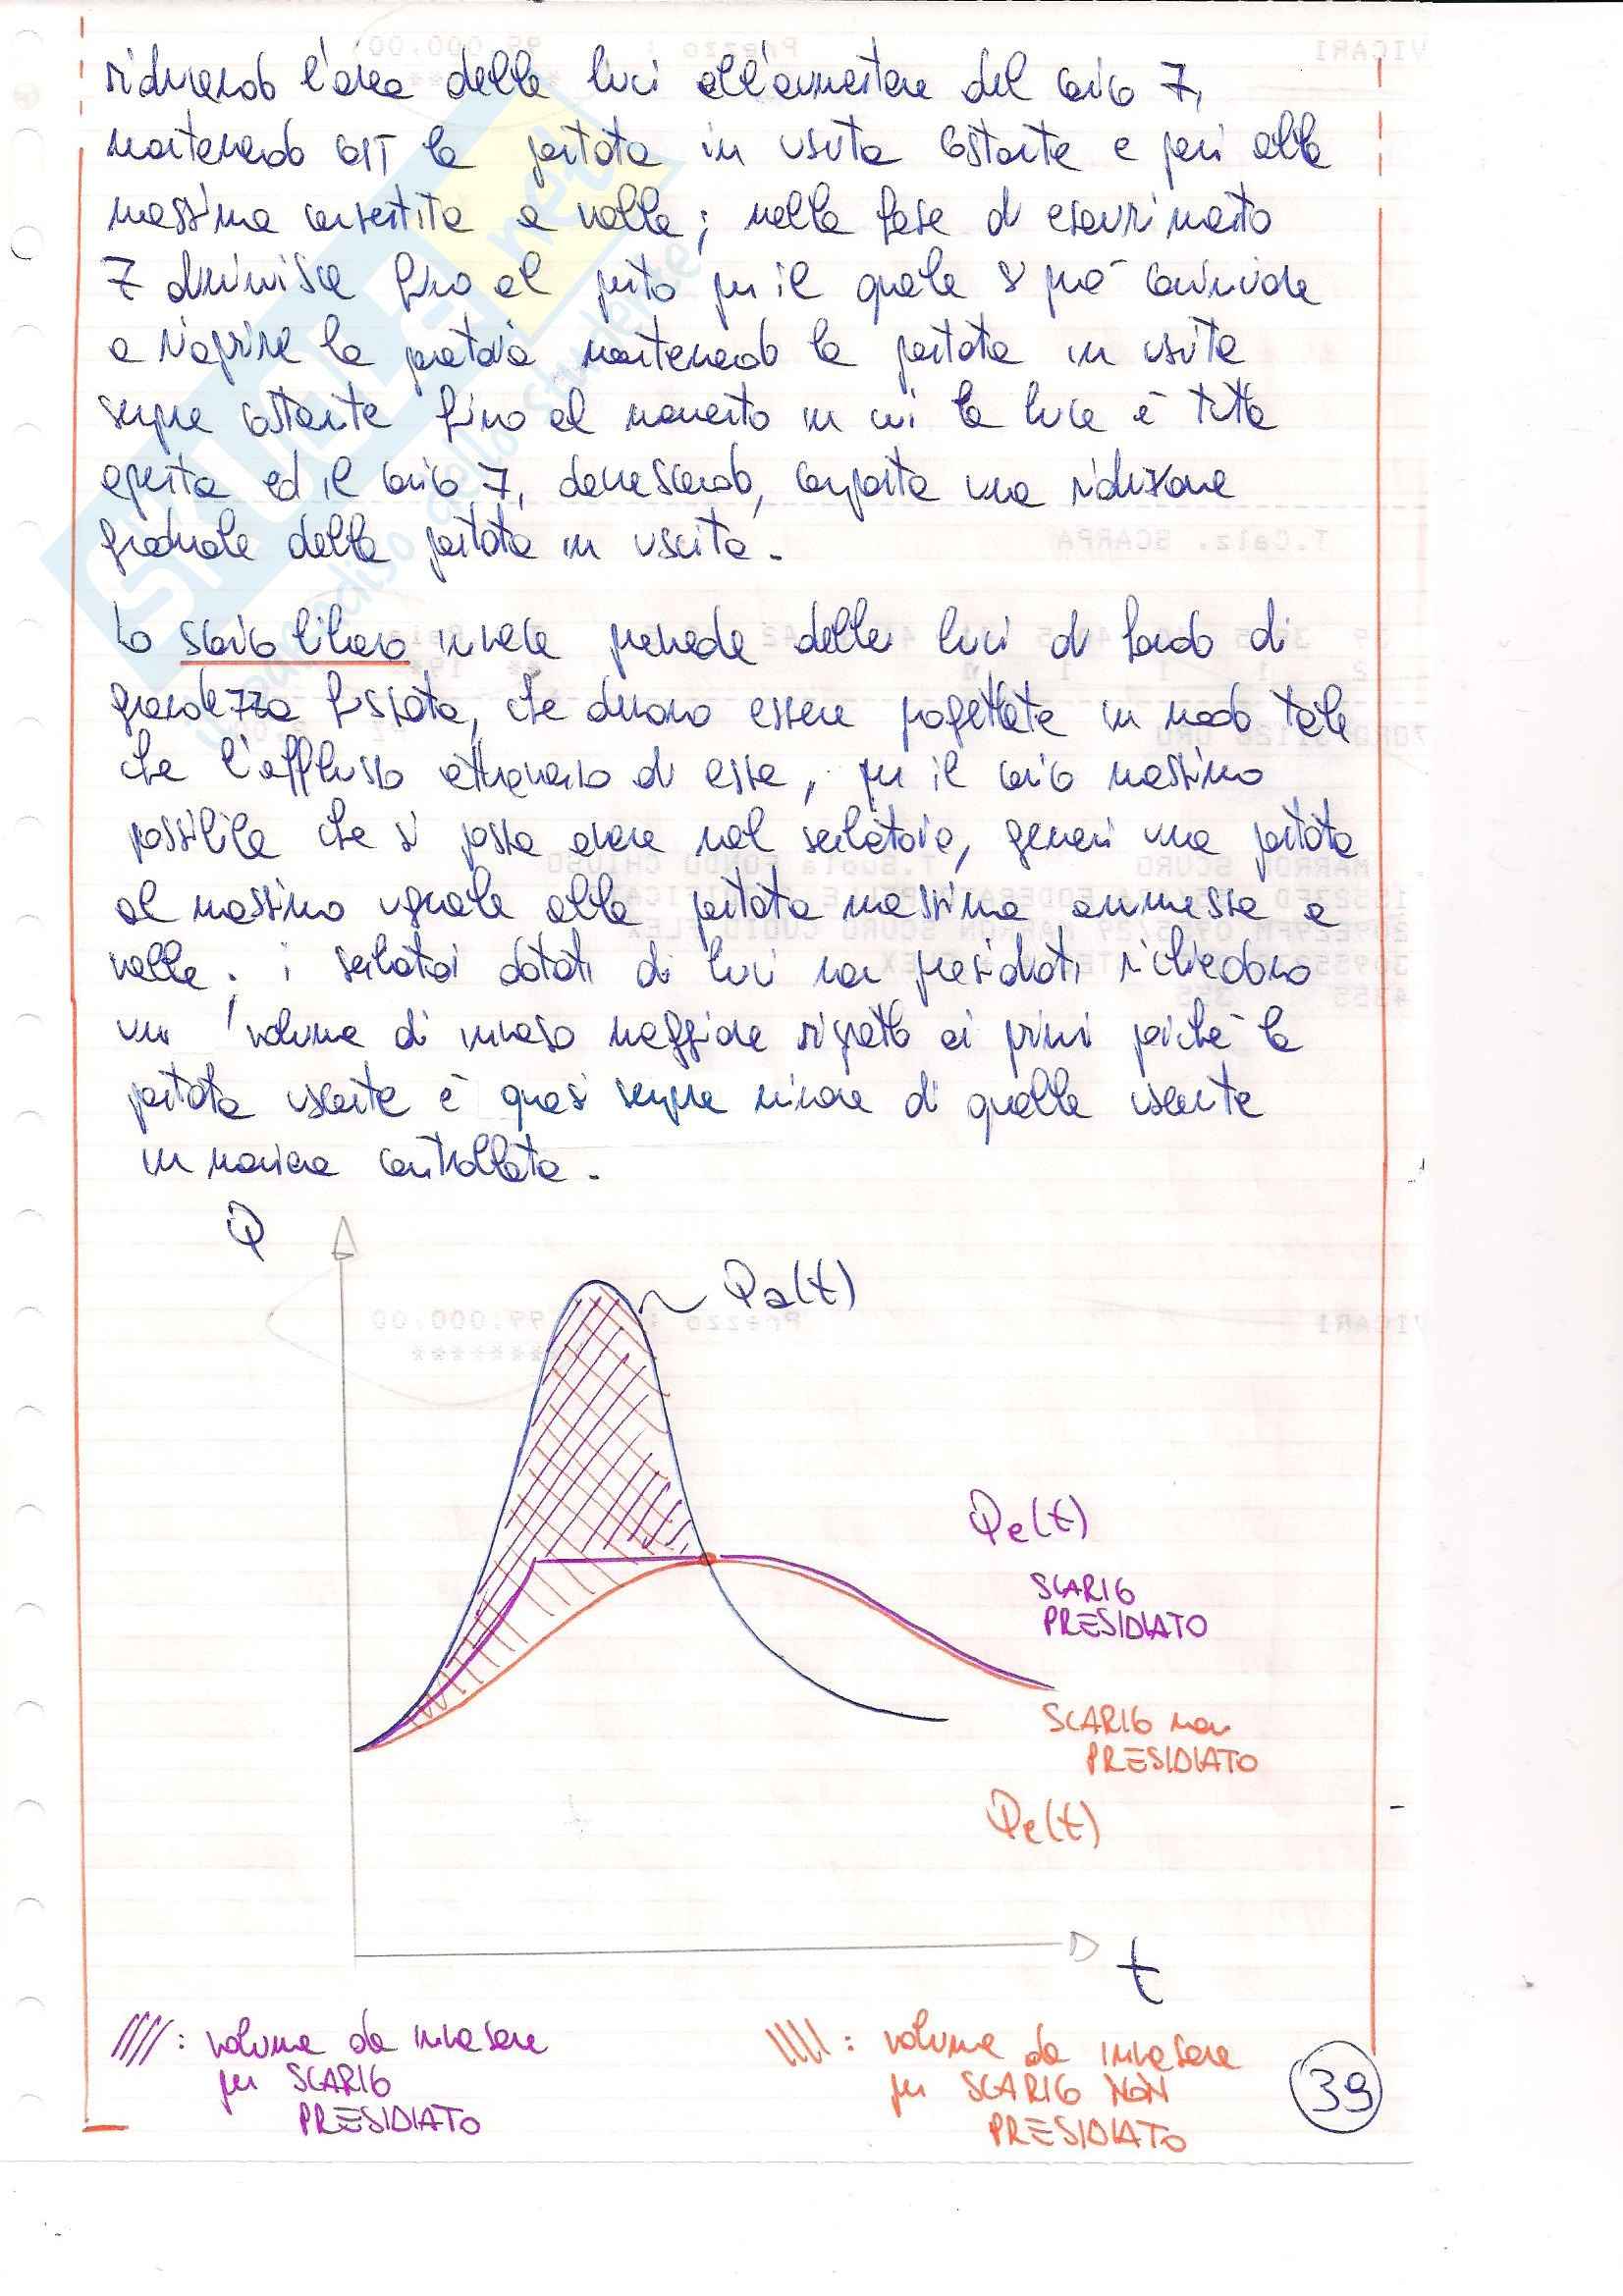 riducendo l'area delle luci all'aumentare del carico Z,
mantenendo così la portata in uscita costante e pari alla
massima consentita a valle; nella fase di esaurimento
Z diminuisce fino al punto per il quale si può cominciare
a riaprire la paratoia mantenendo la portata in uscita
sempre costante fino al momento in cui la luce è tutta
aperta ed il carico Z, decrescendo, comporta una riduzione
graduale della portata in uscita.
Lo scarico libero invece prevede delle luci di fondo di
grandezza fissata, che devono essere progettate in modo tale
che l'afflusso attraverso di esse, per il carico massimo
possibile che si possa avere nel serbatoio, generi una portata
al massimo uguale alla portata massima ammessa a
valle; i serbatoi dotati di luci non presidiati richiedono
un volume di invaso maggiore rispetto ai primi poiché la
portata uscente è quasi sempre minore di quella uscente
in maniera controllata.
Q
Qa(t)
Qe(t)
SCARICO
PRESIDIATO
SCARICO non
PRESIDIATO
Qe(t)
t
: volume da invasare
per SCARICO
PRESIDIATO
: volume da invasare
per SCARICO NON
PRESIDIATO
39